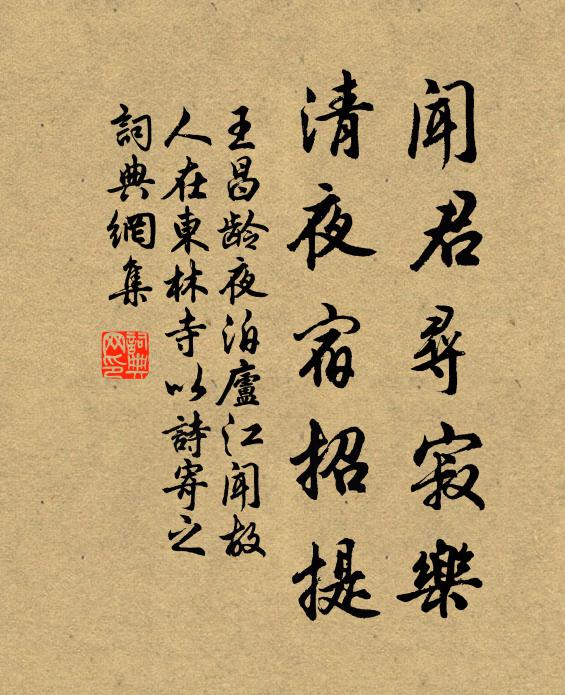 聞君尋寂樂
清夜宿招提
王昌龄夜泊廬江聞故
人在東林寺以詩寄之
詞典網集
詞典
网印